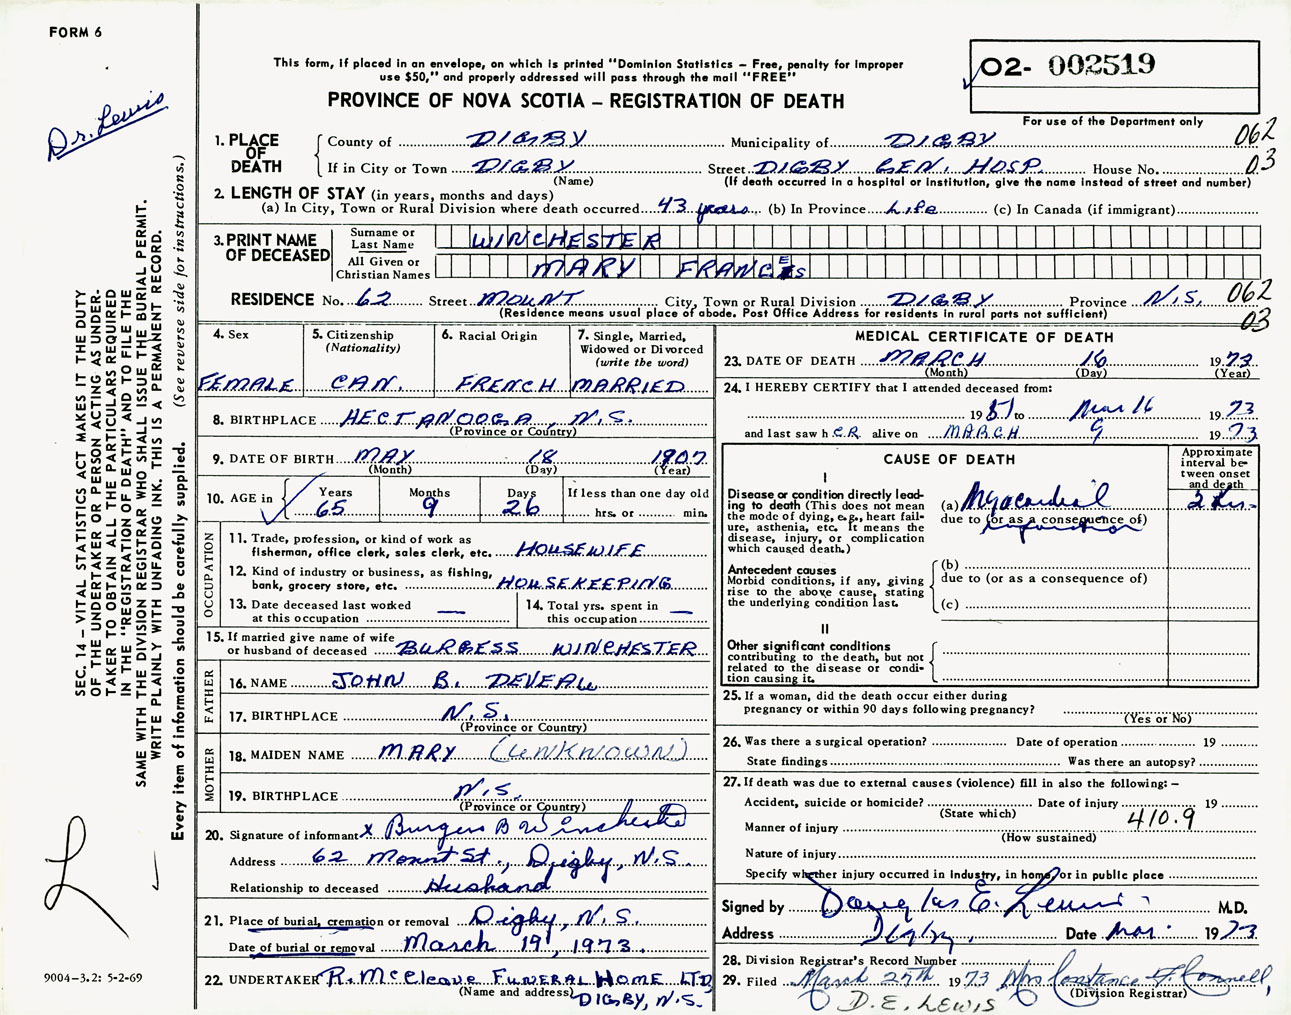 FORM 6
Dr. Lewis
This form, if placed in an envelope, on which is printed "Dominion Statistics – Free, penalty for improper
use $50," and properly addressed will pass through the mail "FREE"
PROVINCE OF NOVA SCOTIA – REGISTRATION OF DEATH
02- 002519
For use of the Department only
062
03
1. PLACE OF DEATH
County of DIGBY Municipality of DIGBY
If in City or Town DIGBY Street DIGBY GEN. HOSP. House No.
(Name) (If death occurred in a hospital or institution, give the name instead of street and number)
2. LENGTH OF STAY (in years, months and days)
(a) In City, Town or Rural Division where death occurred 43 years (b) In Province Life (c) In Canada (if immigrant)
3. PRINT NAME OF DECEASED
Surname or Last Name WINCHESTER
All Given or Christian Names MARY FRANCES
RESIDENCE No. 62 Street MOUNT City, Town or Rural Division DIGBY Province N.S. 062
(Residence means usual place of abode. Post Office Address for residents in rural parts not sufficient) 03
4. Sex
FEMALE
5. Citizenship
(Nationality)
CAN.
6. Racial Origin
FRENCH
7. Single, Married,
Widowed or Divorced
(write the word)
MARRIED
8. BIRTHPLACE HECTANOOGA, N.S.
(Province or Country)
9. DATE OF BIRTH MAY 18 1907
(Month) (Day) (Year)
10. AGE in Years Months Days If less than one day old
65 9 26 hrs. or min.
OCCUPATION
11. Trade, profession, or kind of work as
fisherman, office clerk, sales clerk, etc. HOUSEWIFE
12. Kind of industry or business, as fishing,
bank, grocery store, etc. HOUSEKEEPING
13. Date deceased last worked
at this occupation —
14. Total yrs. spent in
this occupation —
15. If married give name of wife
or husband of deceased BURGESS WINCHESTER
FATHER
16. NAME JOHN B. DEVEAU
17. BIRTHPLACE N.S.
(Province or Country)
MOTHER
18. MAIDEN NAME MARY (UNKNOWN)
19. BIRTHPLACE N.S.
(Province or Country)
20. Signature of informant x Burgess B Winchester
Address 62 Mount St., Digby, N.S.
Relationship to deceased Husband
21. Place of burial, cremation or removal Digby, N.S.
Date of burial or removal March 19, 1973
22. UNDERTAKER R. McCleave FUNERAL HOME LTD
(Name and address) DIGBY, N.S.
MEDICAL CERTIFICATE OF DEATH
23. DATE OF DEATH MARCH 16 1973
(Month) (Day) (Year)
24. I HEREBY CERTIFY that I attended deceased from:
1951 to Mar 16 1973
and last saw her alive on MARCH 9 1973
CAUSE OF DEATH
Approximate
interval be-
tween onset
and death
I
Disease or condition directly lead-
ing to death (This does not mean
the mode of dying, e.g., heart fail-
ure, asthenia, etc. It means the
disease, injury, or complication
which caused death.)
(a) Myocardial
due to (or as a consequence of)
infarction
2 hrs
Antecedent causes
Morbid conditions, if any, giving
rise to the above cause, stating
the underlying condition last.
(b)
due to (or as a consequence of)
(c)
II
Other significant conditions
contributing to the death, but not
related to the disease or condi-
tion causing it.
25. If a woman, did the death occur either during
pregnancy or within 90 days following pregnancy?
(Yes or No)
26. Was there a surgical operation? Date of operation 19
State findings Was there an autopsy?
27. If death was due to external causes (violence) fill in also the following: –
Accident, suicide or homicide? Date of injury 19
(State which) 410.9
Manner of injury
(How sustained)
Nature of injury
Specify whether injury occurred in industry, in home, or in public place
Signed by Douglas E. Lewis M.D.
Address Digby. Date Mar. 1973
28. Division Registrar's Record Number
29. Filed March 25th 1973 Mrs Constance F. Connell,
(Division Registrar)
D. E. LEWIS
SEC. 14 – VITAL STATISTICS ACT MAKES IT THE DUTY
OF THE UNDERTAKER OR PERSON ACTING AS UNDER-
TAKER TO OBTAIN ALL THE PARTICULARS REQUIRED
IN THE "REGISTRATION OF DEATH" AND TO FILE THE
SAME WITH THE DIVISION REGISTRAR WHO SHALL ISSUE THE BURIAL PERMIT.
WRITE PLAINLY WITH UNFADING INK. THIS IS A PERMANENT RECORD.
Every item of information should be carefully supplied. (See reverse side for instructions.)
L
9004-3.2: 5-2-69